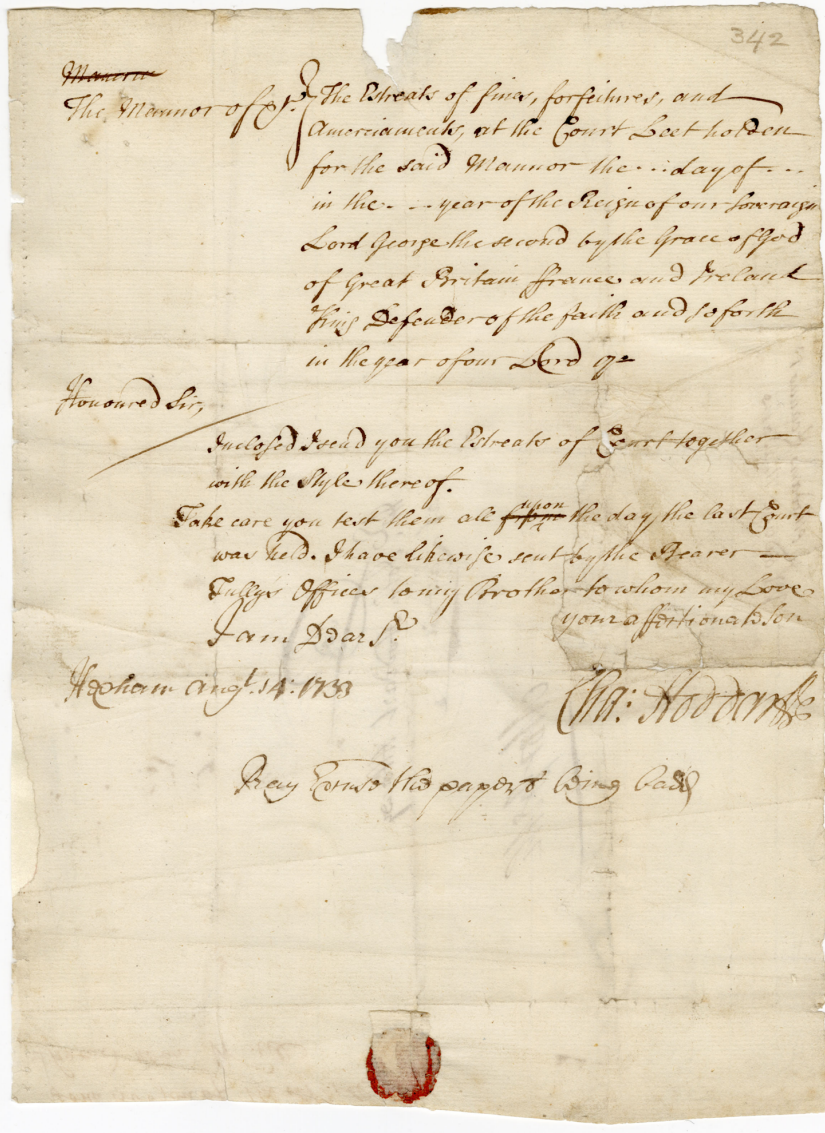 342
Manner
The Mannor of &c. The Estreats of fines, forfeitures, and
Amerciaments, at the Court Leet holden
for the said Mannor the ... day of ...
in the - - year of the Reign of our Soveraign
Lord George the second by the Grace of God
of Great Britain ffrance and Ireland
King Defender of the faith and so forth
in the year of our Lord 17=
Honoured Sir,
Inclosed I send you the Estreats of Court together
with the Style thereof.
Take care you test them all upon the day the last Court
was held. I have likewise sent by the Bearer —
Tully's Offices to my Brother to whom my Love
I am Dear Sr. your affectionate Son
Hexham Augt. 14: 1733
Cha:
Pray Excuse the paper being bad